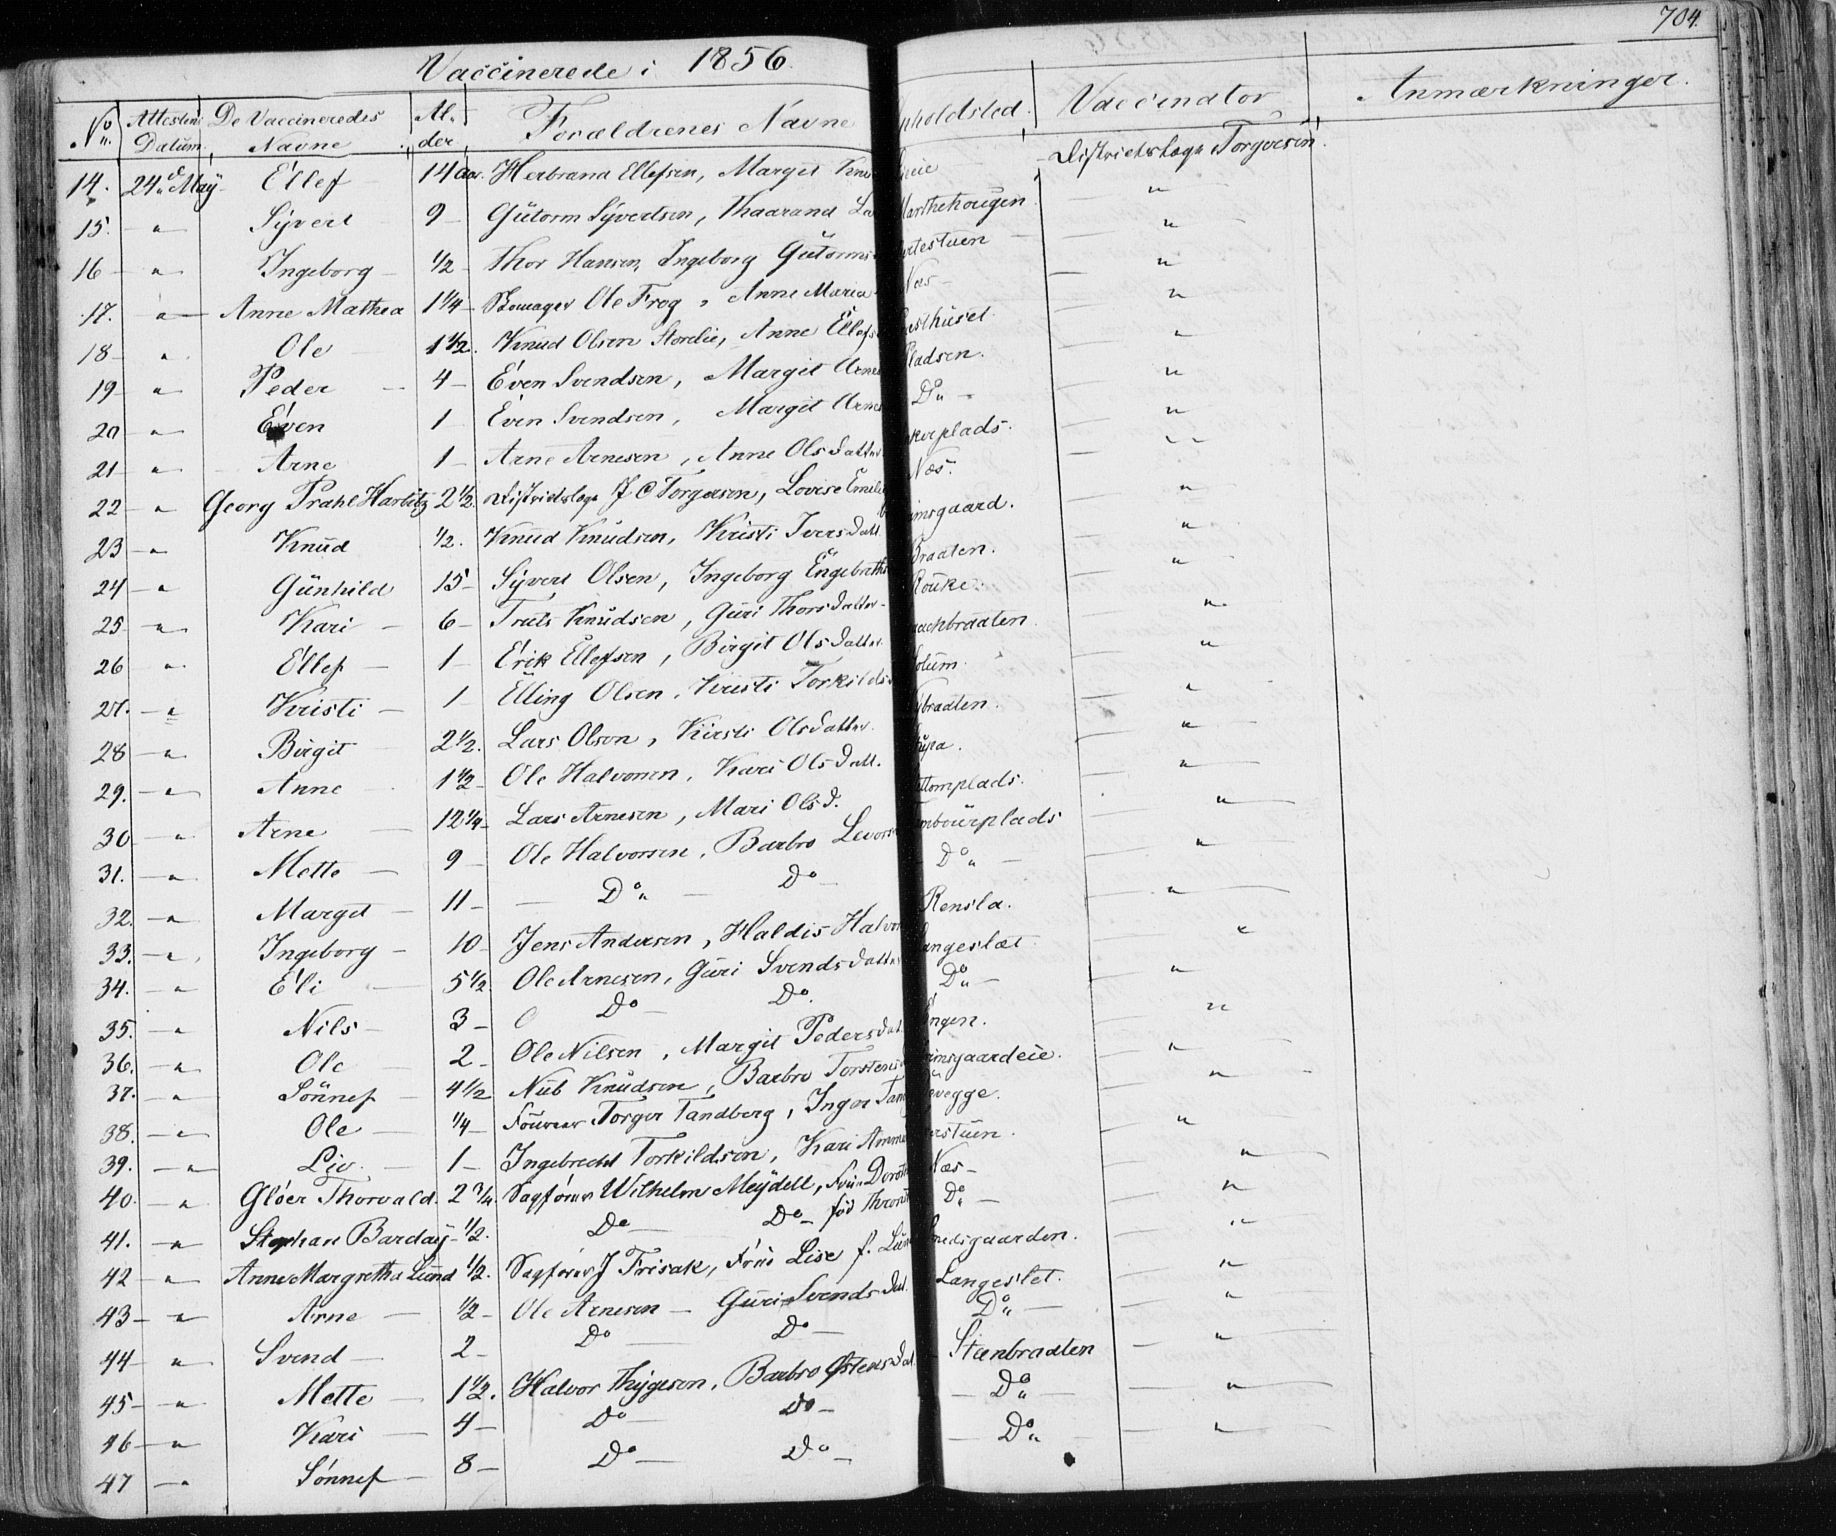 704.
Vaccinerede i 1856.
No. Attestens Datum. De Vaccineredes Navne Al- der Forældrenes Navne pholdsted. Vaccinator Anmærkninger.
14. 24d. May Ellef 14 aar. Herbrand Ellefsen, Margit Knu eie Districtslæge Torgersen.
15. " Syvert 9 Gutorm Syvertsen, Thaarand La Marthehougen "
16 " Ingeborg 1/2 Thor Hansen, Ingeborg Gutorms rtestuen "
17. " Anne Mathea 1 1/4 Skomager Ole Frog, Anne Maria Næs "
18 " Ole 1 1/2. Knud Olsen Storelie, Anne Ellefs esthuset. "
19 " Peder 4 Even Svendsen, Margit Arnes ladsen. "
20 " Even 1 Even Svendsen, Margit Arnes Do "
21 " Arne 1 Arne Arnesen, Anne Olsdatter kerplads. "
22 " Georg Prahl Harbitz 2 1/2. Districtslæge J C Torgersen, Lovise Emelie Næs. "
23 " Knud 1/2. Knud Knudsen, Kristi Iversdatt imsgaard. "
24 " Gunhild 15 Syvert Olsen, Ingeborg Engebreths Braaten. "
25 " Kari 6 Truls Knudsen, Guri Thorsdatter Rouke. "
26 " Ellef 1 Erik Ellefsen, Birgit Olsdatter aachbraaten. "
27. " Kristi 1 Elling Olsen, Kristi Torkilds olum. "
28 " Birgit 2 1/2. Lars Olsen, Kirsti Olsdatter ybraaten. "
29. " Anne 1 1/2 Ole Halvorsen, Kari Olsdatt. upa. "
30 " Arne 12 1/4 Lars Arnesen, Mari Olsd. ttomplads. "
31. " Mette 9 Ole Halvorsen, Barbro Levors mbourplads "
32. " Marget 11 Do Do Do "
33. " Ingeborg 10 Jens Andersen, Haldis Halvor Rensla. "
34. " Eli 5 1/2 Ole Arnesen, Guri Svendsdatter angeslæt "
35. " Nils 3 Do Do. Do "
36. " Ole 2 Ole Nilsen, Margit Pedersdat. Engen. "
37. " Sønnef 4 1/2 Nub Knudsen, Barbro Torstens imsgaardeie. "
38. " Ole 1/4 Foureer Torger Tandberg, Inger Tan evegge. "
39. " Liv. 1 Ingebrecht Torkildsen, Kari Amme erstuen. "
40. " Gløer Thorvald. 2 3/4. Sagfører Wilhelm Meydell, Frue Doroth Næs "
41. " Stephan Barclay 1/2. Do Do fød Thron Do "
42 " Anne Margretha Lund 1/2. Sagfører J Frisak, Frue Lise f. Lun nedsgaarden. "
43 " Arne 1/2 Ole Arnesen Guri Svendsdat. Langeslet. "
44 " Svend 2 Do Do Do "
45 " Mette 1 1/2. Halvor Thygesen, Barbro Østensdat. Stenbraaten "
46 " Kari 4 Do Do Do "
47 " Sønnef 8 Do Do Do "